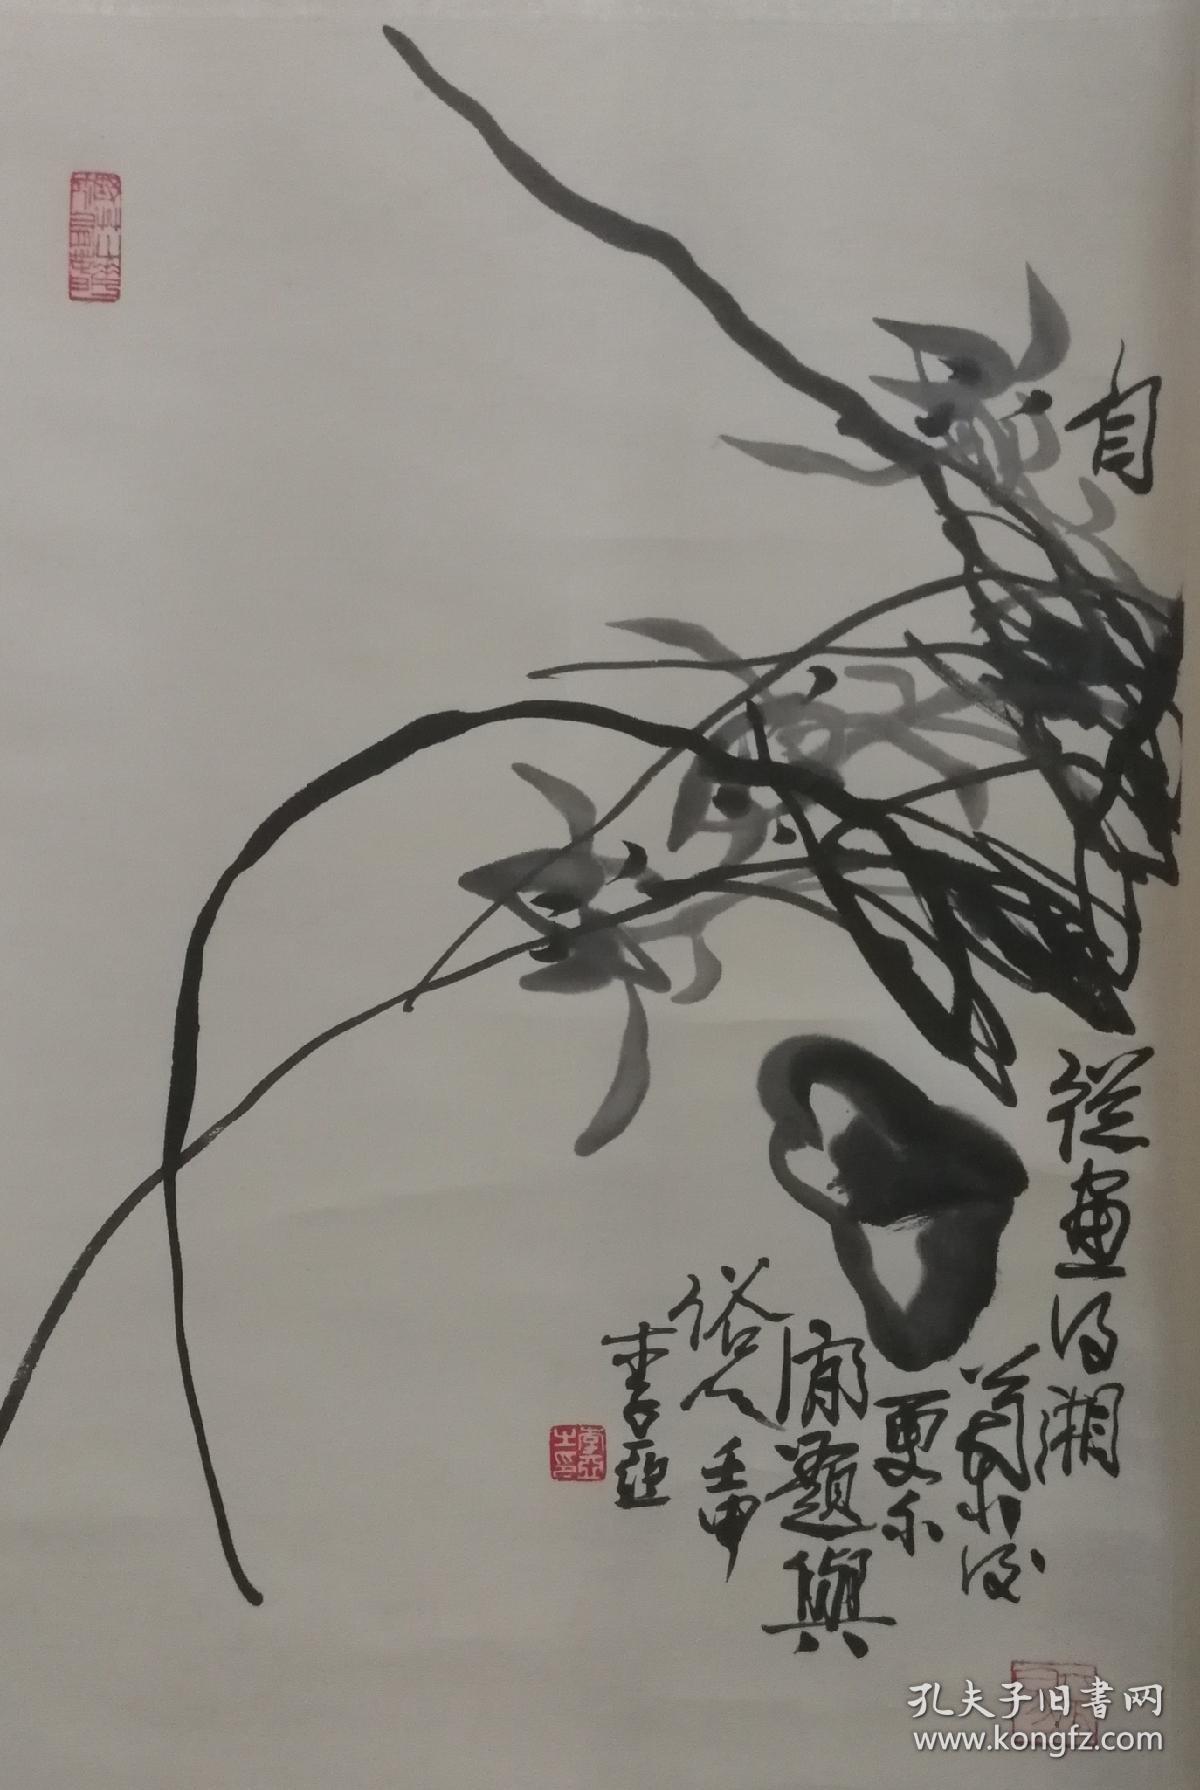 自
從畫得湘
蘭後
更不
閑題與
俗人 壬申
李亞
孔夫子旧書网
www.kongfz.com